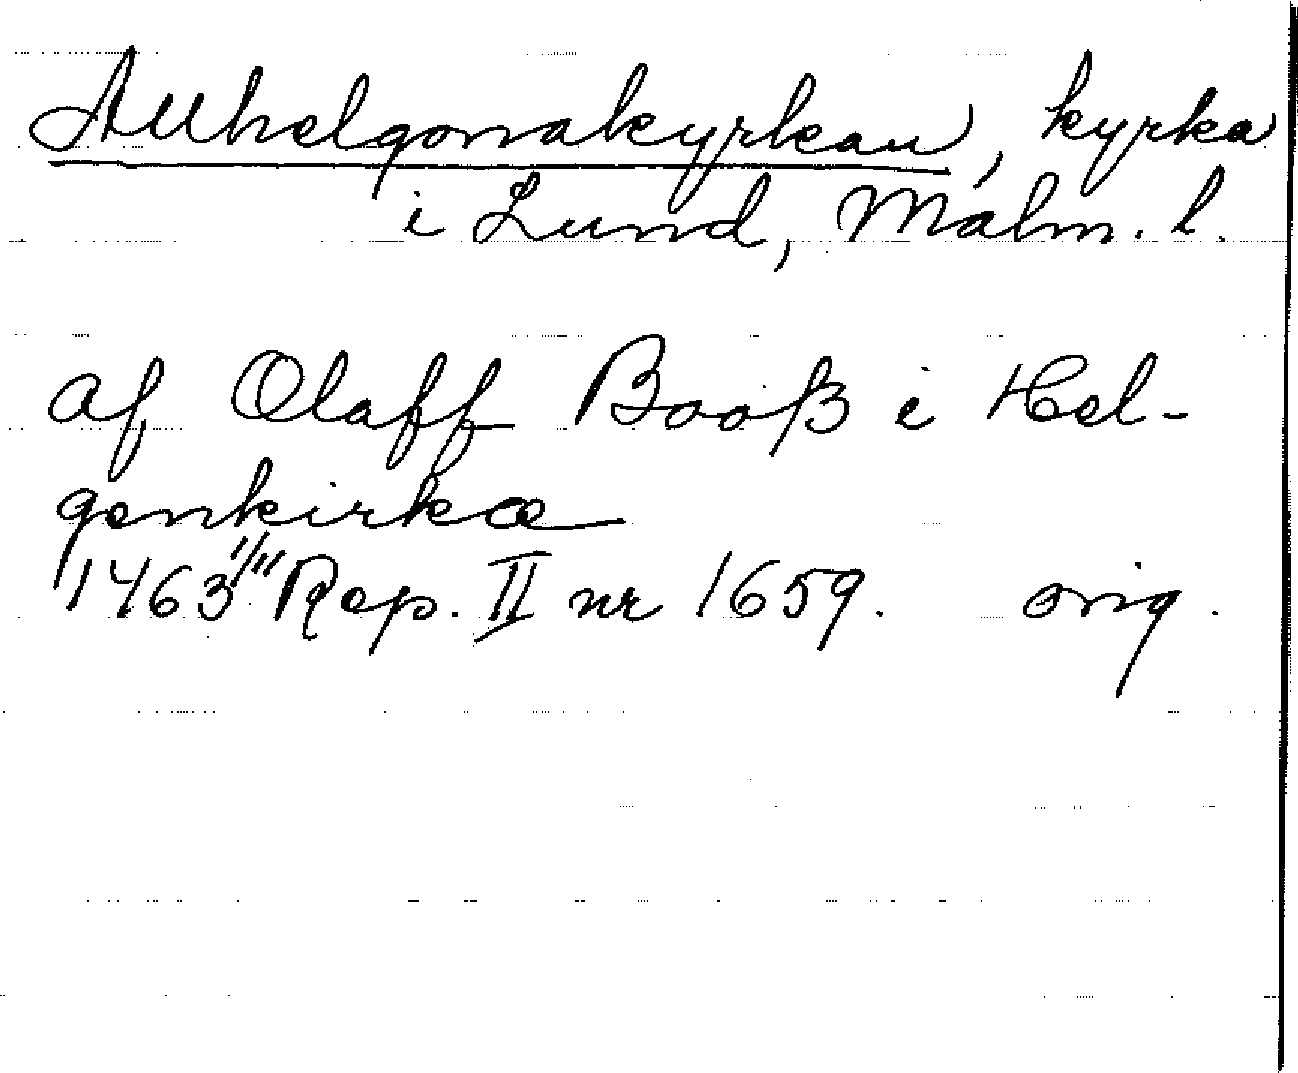 Allhelgonakyrkan, kyrka
i Lund, Malm. l.
af Olaff Booß i Hel-
genkirkæ
1463 Rep. II nr 1659. orig.